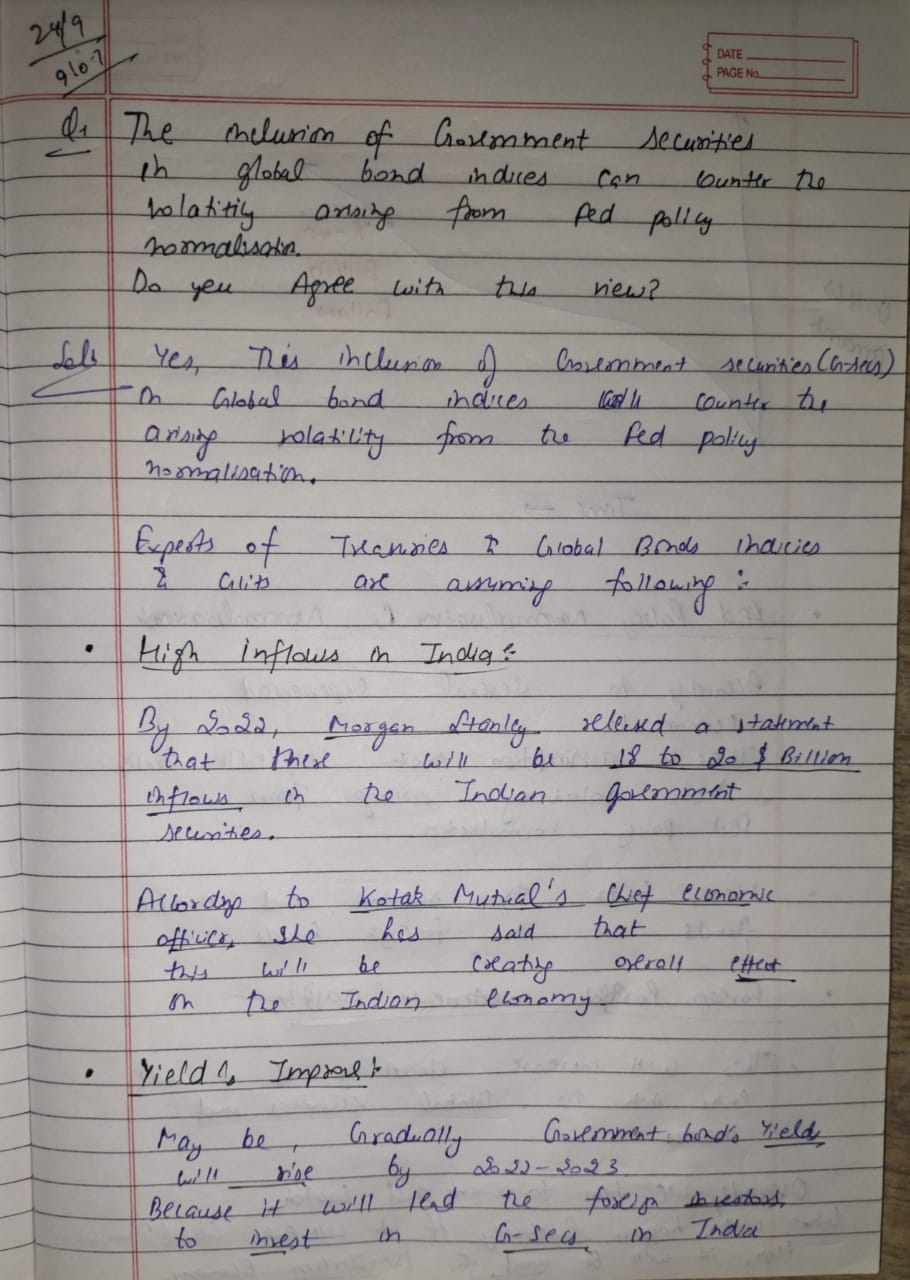 24/9
DATE
PAGE No.
Q1 The inclusion of Government securities
in global bond indices can counter the
volatitiy arising from Fed policy
normalisatn.
Do you Agree with this view?
Sol: Yes, This inclusion of Government securities (G-secs)
in Global bond indices counter the
arising volatility from the Fed policy
normalisation.
Experts of Treasuries & Global Bonds indicies
& Gilts are assuming following :
• High inflows in India :
By 2022, Morgan Stanley relesed a statement
that there will be 18 to 20 $ Billion
inflows in the Indian government
securities.
According to Kotak Mutual's Chief economic
officer, she has said that
this will be creating overall effect
on the Indian economy
• Yield Improve :
May be, Gradually Government bond's Yields
will rise by 2022-2023
Because it will lead the foreign investors,
to invest in G-secs in India